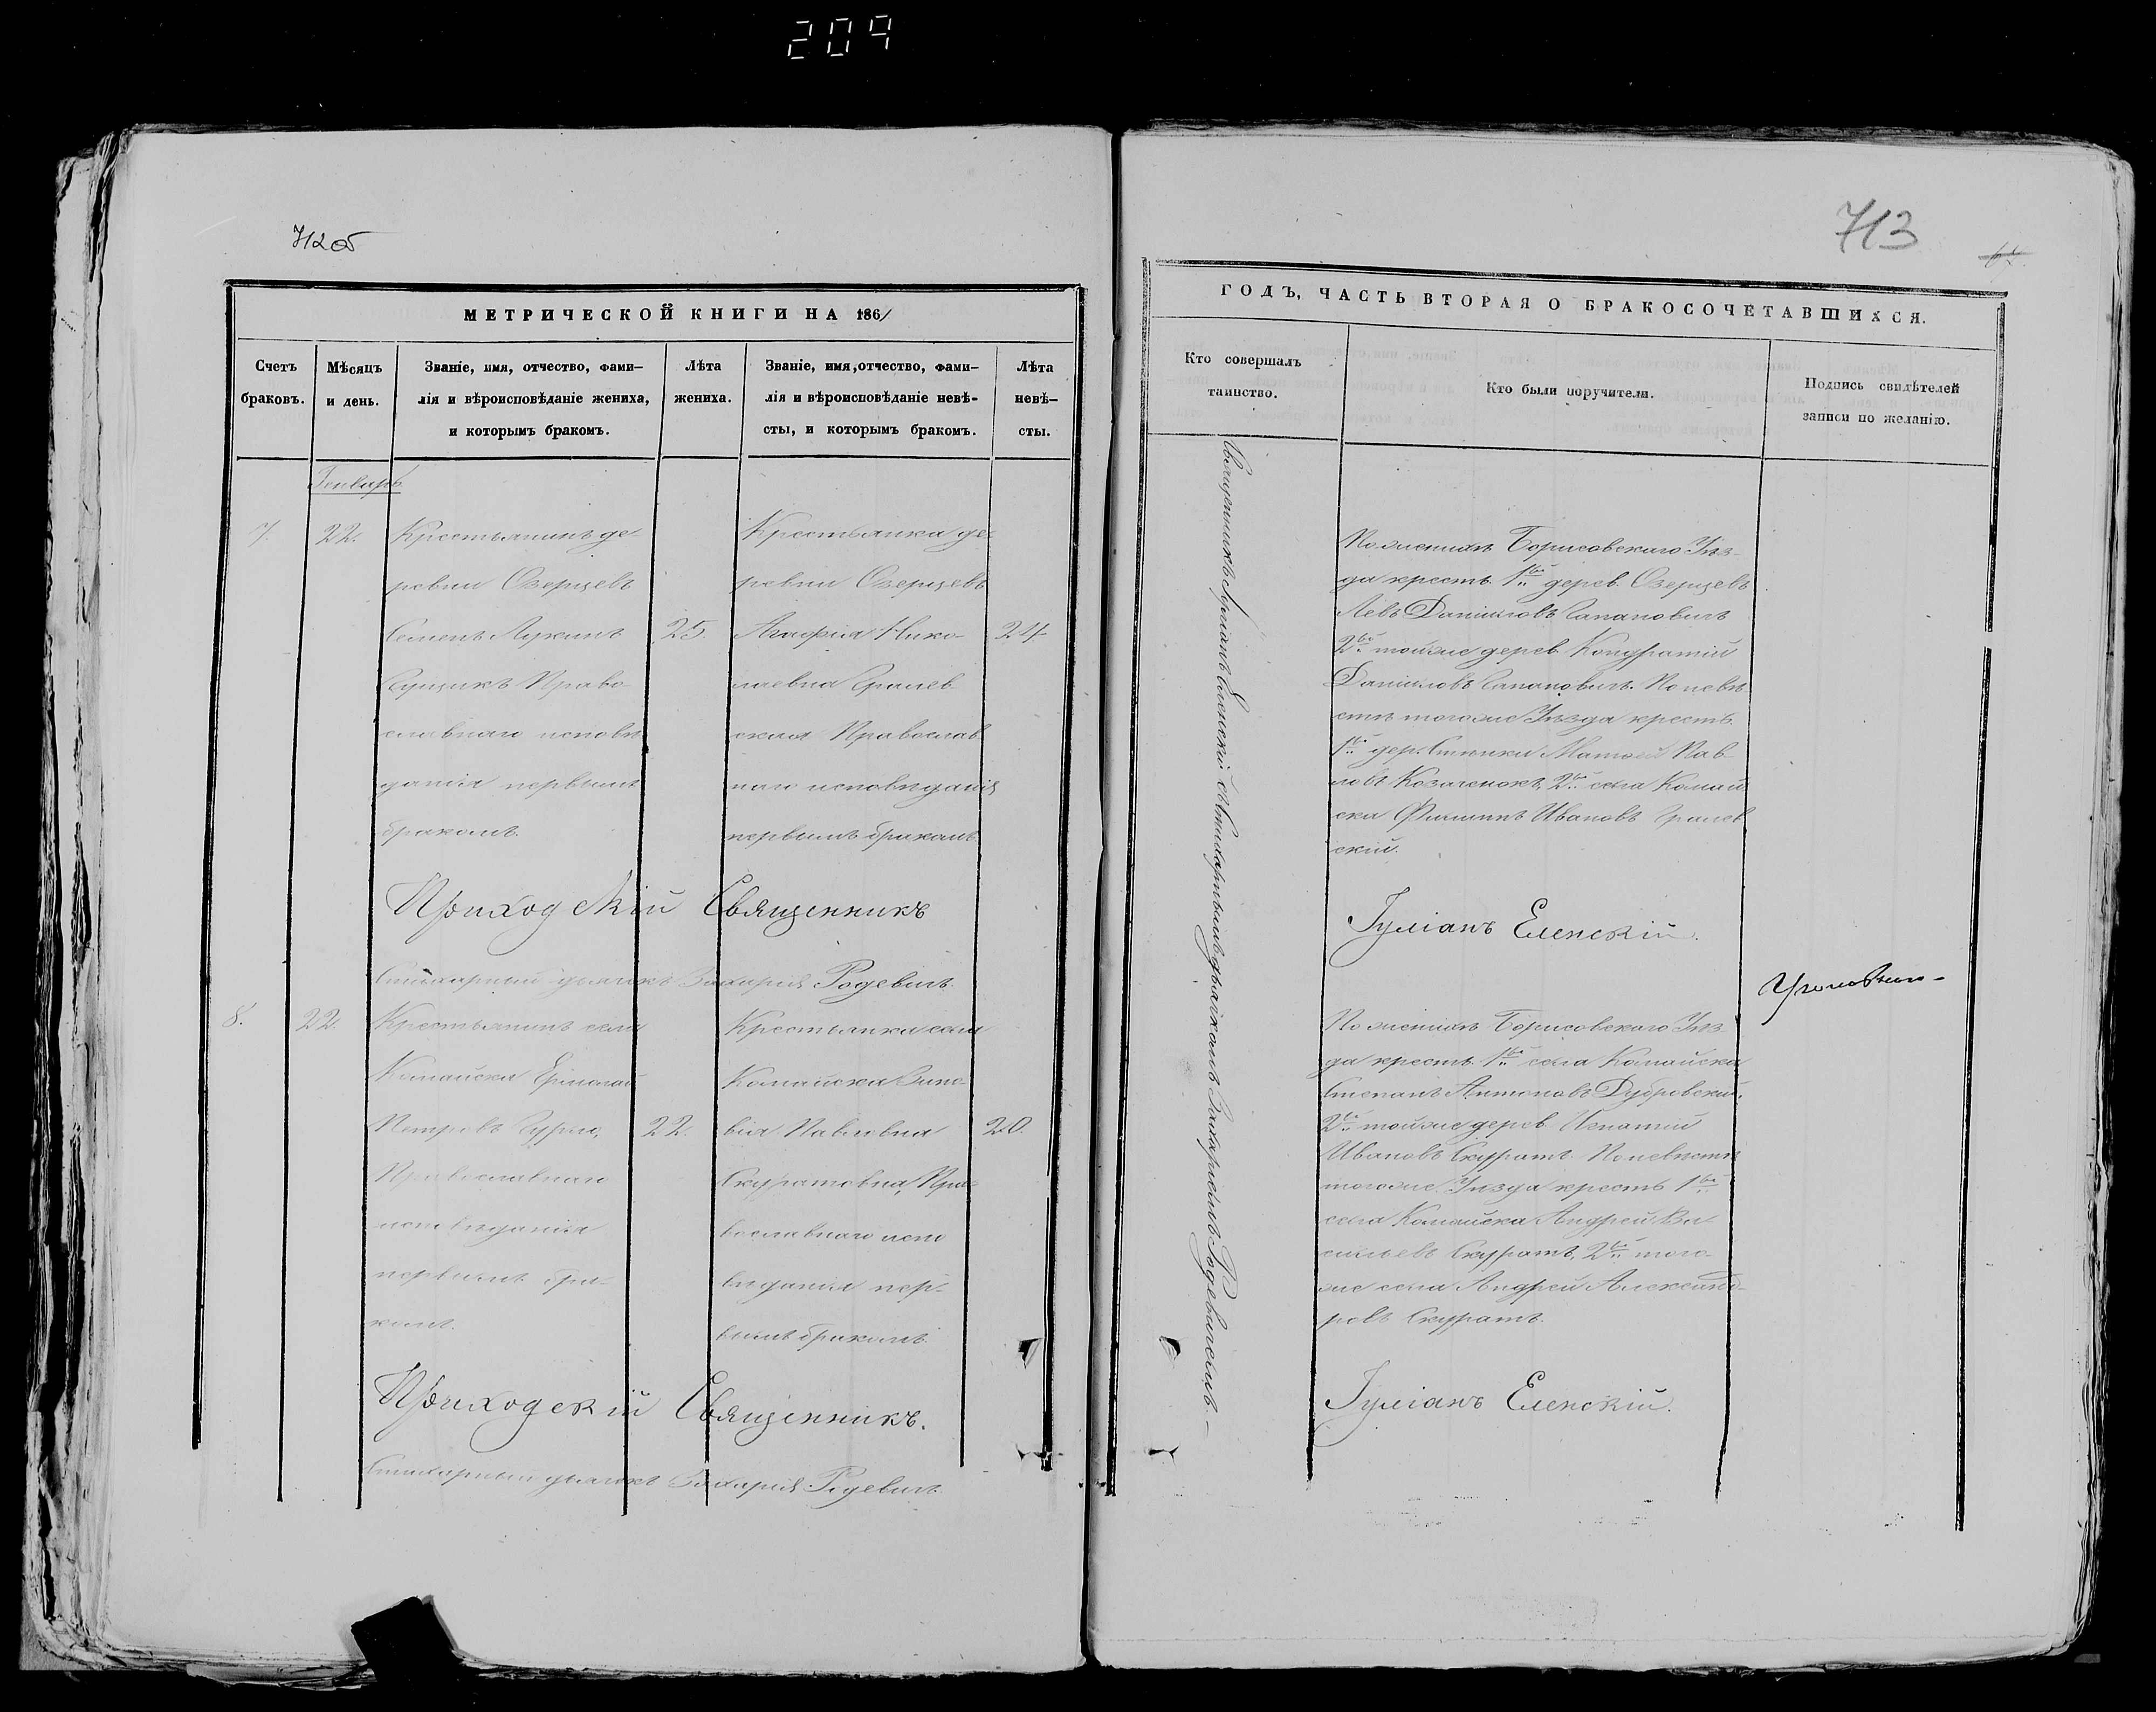 209
712об
МЕТРИЧЕСКОЙ КНИГИ НА 1861
Счетъ браковъ.
Мѣсяцъ и день.
Званіе, имя, отчество, фами-
лія и вѣроисповѣданіе жениха,
и которымъ бракомъ.
Лѣта жениха.
Званіе, имя, отчество, фами-
лія и вѣроисповѣданіе невѣ-
сты, и которымъ бракомъ.
Лѣта невѣ-
сты.
Генварь
7.
22.
Крестьянинъ де-
ревни Озерцевъ
Семенъ Лукинъ
Сущикъ Право-
славнаго исповѣ
данія первымъ
бракомъ.
25.
Крестьянка де-
ревни Озерцевъ
Агафія Нико-
лаевна
ская Православ
наго исповѣданія
первымъ бракомъ
24
Приходскій Священникъ
Стихарный дьячокъ Захарія Родевичъ.
8.
22.
Крестьянинъ села
Комайска Ермолай
Петровъ
Православнаго
исповѣданія
первымъ бра-
комъ.
22.
Крестьянка села
Комайска Зино-
вія Павловна
Скуратовна, Пра-
вославнаго испо
вѣданія пер-
вымъ бракомъ.
20.
Приходскій Священникъ.
Стихарный дьячокъ Захарія Родевичъ.
713
ГОДЪ, ЧАСТЬ ВТОРАЯ О БРАКОСОЧЕТАВШИХСЯ.
Кто совершалъ
таинство.
Кто были поручители.
Подпись свидѣтелей
записи по желанію.
Священникъ Іуліанъ Еленскій съ стихарнымъ дьячкомъ Захаріемъ Родевичемъ.
По женихѣ Борисовскаго Уѣз-
да крестъ. 1й дерев. Озерцевъ
Левъ Даніиловъ Сапановичъ
2й тойже дерев. Кондратій
Даніиловъ Сапановичъ. По невѣ-
стѣ тогоже Уѣзда крестъ.
1й дер. Стенки Матвей Пав
ловъ Козаченокъ, 2й села Комай
ска Филипъ Ивановъ
скій.
Іуліанъ Еленскій.
По женихѣ Борисовскаго Уѣз
да крестъ. 1й села Комайска
Степанъ Антоновъ Дубровскій,
2й тойже дерев. Ипатій
Ивановъ Скуратъ. По невѣстѣ
тогоже Уѣзда крестъ. 1й
села Комайска Андрей Ва
сильевъ Скуратъ, 2й того-
же села Андрей Александ-
ровъ Скуратъ.
Іуліанъ Еленскій.